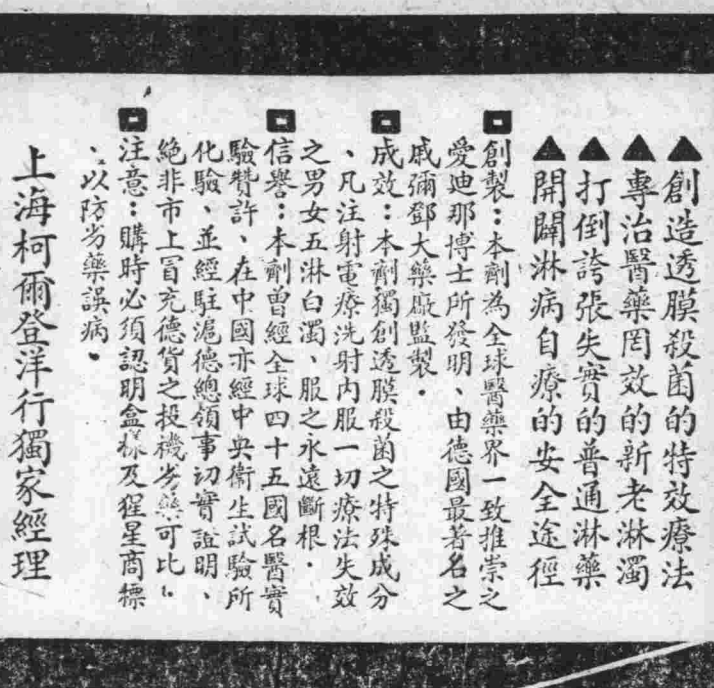 ▲創造透膜殺菌的特效療法
▲專治醫藥罔效的新老淋濁
▲打倒誇張失實的普通淋藥
▲開闢淋病自療的安全途徑
創製:本劑為全球醫藥界一致推崇之
愛迪那博士所發明、由德國最著名之
戚彌鄧大藥廠監製.
成效:本劑獨創透膜殺菌之特殊成分
、凡注射電療洗射內服一切療法失效
之男女五淋白濁、服之永遠斷根.
信譽:本劑曾經全球四十五國名醫實
驗贊許、在中國亦經中央衛生試驗所
化驗、並經駐滬德總領事切實證明、
絕非市上冒充德貨之投機劣藥可比.
注意:購時必須認明盒樣及猩星商標
、以防劣藥誤病.
上海柯爾登洋行獨家經理